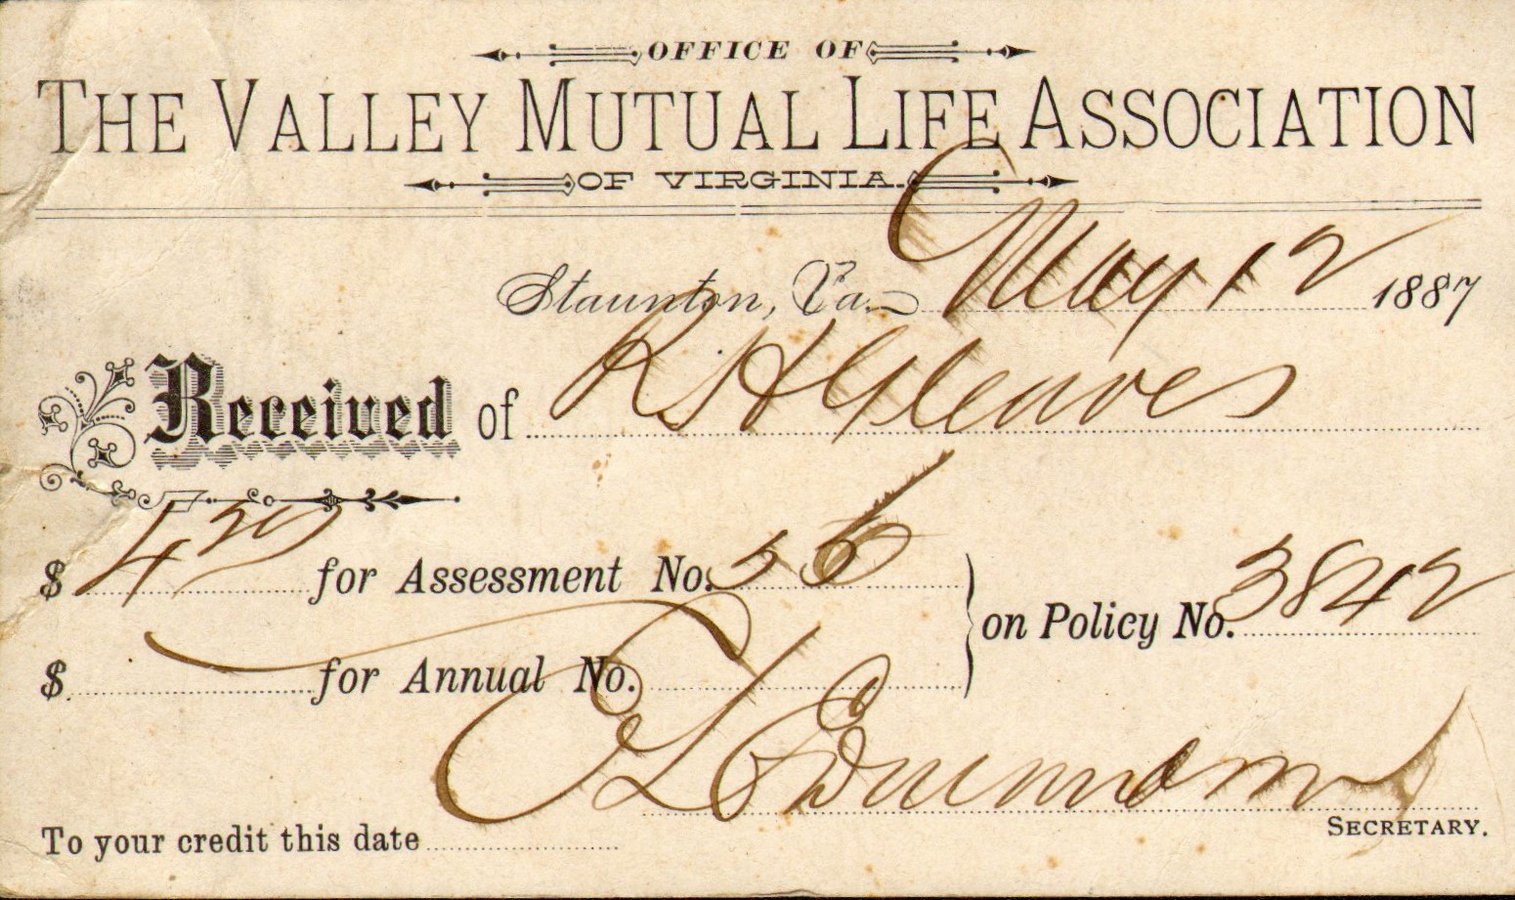 OFFICE OF
THE VALLEY MUTUAL LIFE ASSOCIATION
OF VIRGINIA.
Staunton, Va. May 12 1887
Received of R H Gleaves
$ 4 20 for Assessment No. 56
on Policy No. 3842
$ for Annual No.
SECRETARY.
To your credit this date